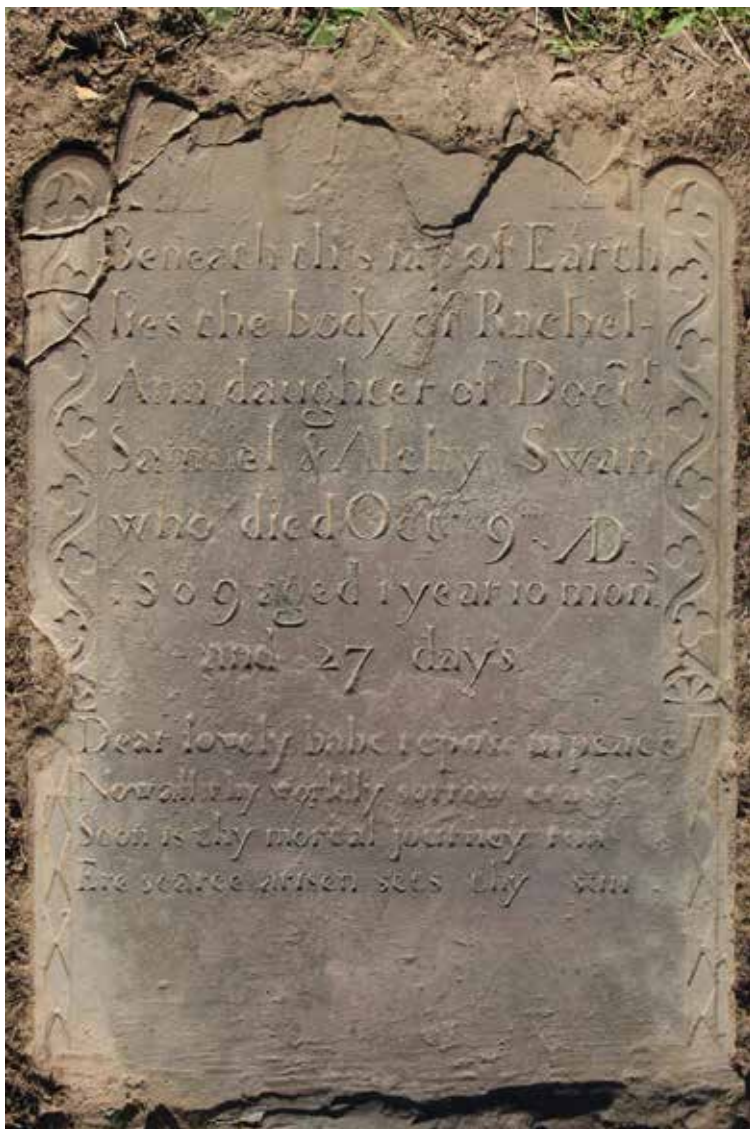 Beneath this mas of Earth
lies the body of Rachel-
Ann daughter of Doct.r
Samuel & Alchy Swan
who died Oct. 9th AD.
1809 aged 1 year 10 mon.s
and 27 days.
Dear lovely babe repose in peace
Now all thy worldly sorrow cease
Soon is thy mortal journey run
Ere scarce arisen sets thy sun